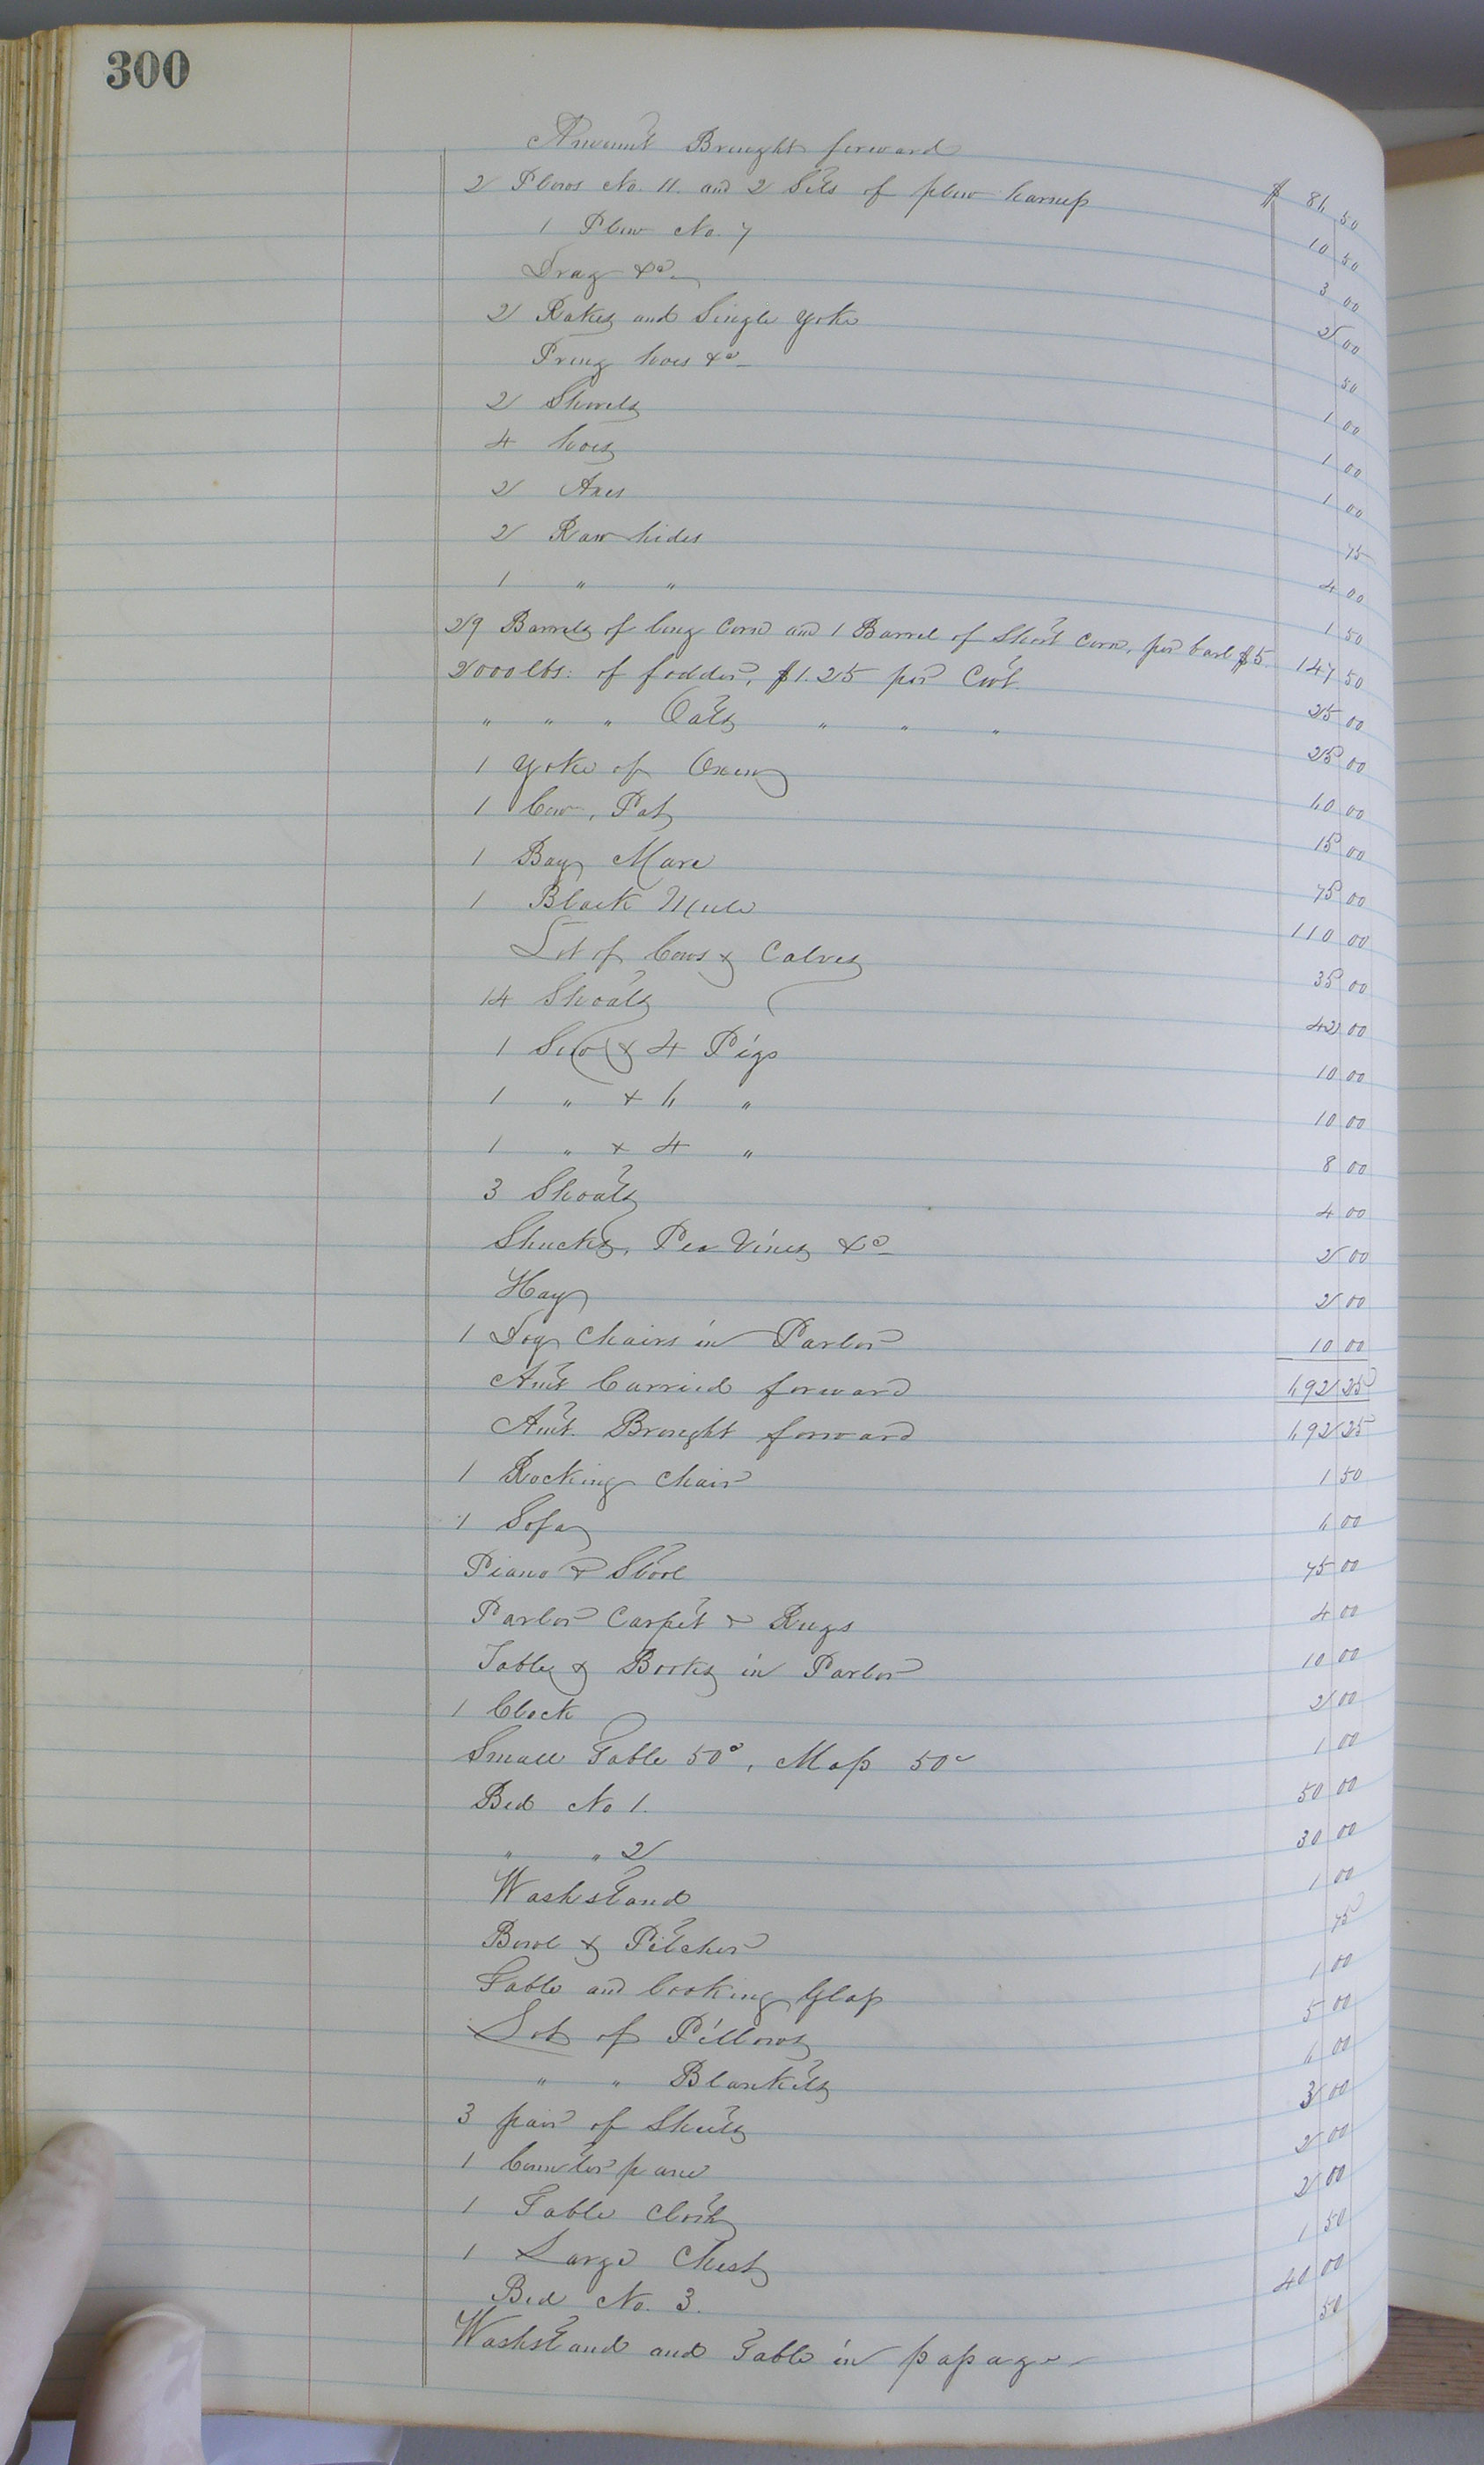 300
Amount Brought forward $ 86 50
2 Plows No. 11. and 2 Sets of plow harness 10 50
1 Plow No. 7 3 00
Drag &c 2 00
2 Rakes and Single Yoke 50
Prong hoes &c 1 00
2 Shovels 1 00
4 hoes 1 00
2 Axes 75
2 Raw hides 4 00
1 " " 1 50
29 Barrels of long Corn and 1 Barrel of Short Corn, per barl $5. 147 50
2000 lbs: of fodder, $1.25 per Cwt. 25 00
" " " Oats " " " 25 00
1 Yoke of Oxen 60 00
1 Cow, Pat 15 00
1 Bay Mare 75 00
1 Black Mule 110 00
Lot of Cows & Calves 35 00
14 Shoats 42 00
1 Sow & 4 Pigs 10 00
1 " & 6 " 10 00
1 " & 4 " 8 00
3 Shoats 4 00
Shucks, Pea Vines &c 2 00
Hay 2 00
1 Doz Chairs in Parlor 10 00
Amt Carried forward 692 25
Amt. Brought forward 692 25
1 Rocking Chair 1 50
1 Sofa 6 00
Piano & Stool 75 00
Parlor Carpet & Rugs 4 00
Table & Books in Parlor 10 00
1 Clock 2 00
Small Table 50c, Map 50c 1 00
Bed No 1. 50 00
" " 2 30 00
Washstand 1 00
Bowl & Pitcher 75
Table and looking Glass 1 00
Lot of Pillows 5 00
" " Blankets 6 00
3 pair of Sheets 3 00
1 Counterpane 2 00
1 Table Cloth 2 00
1 Large Chest 1 50
Bed No. 3. 40 00
Washstand and Table in passage 50